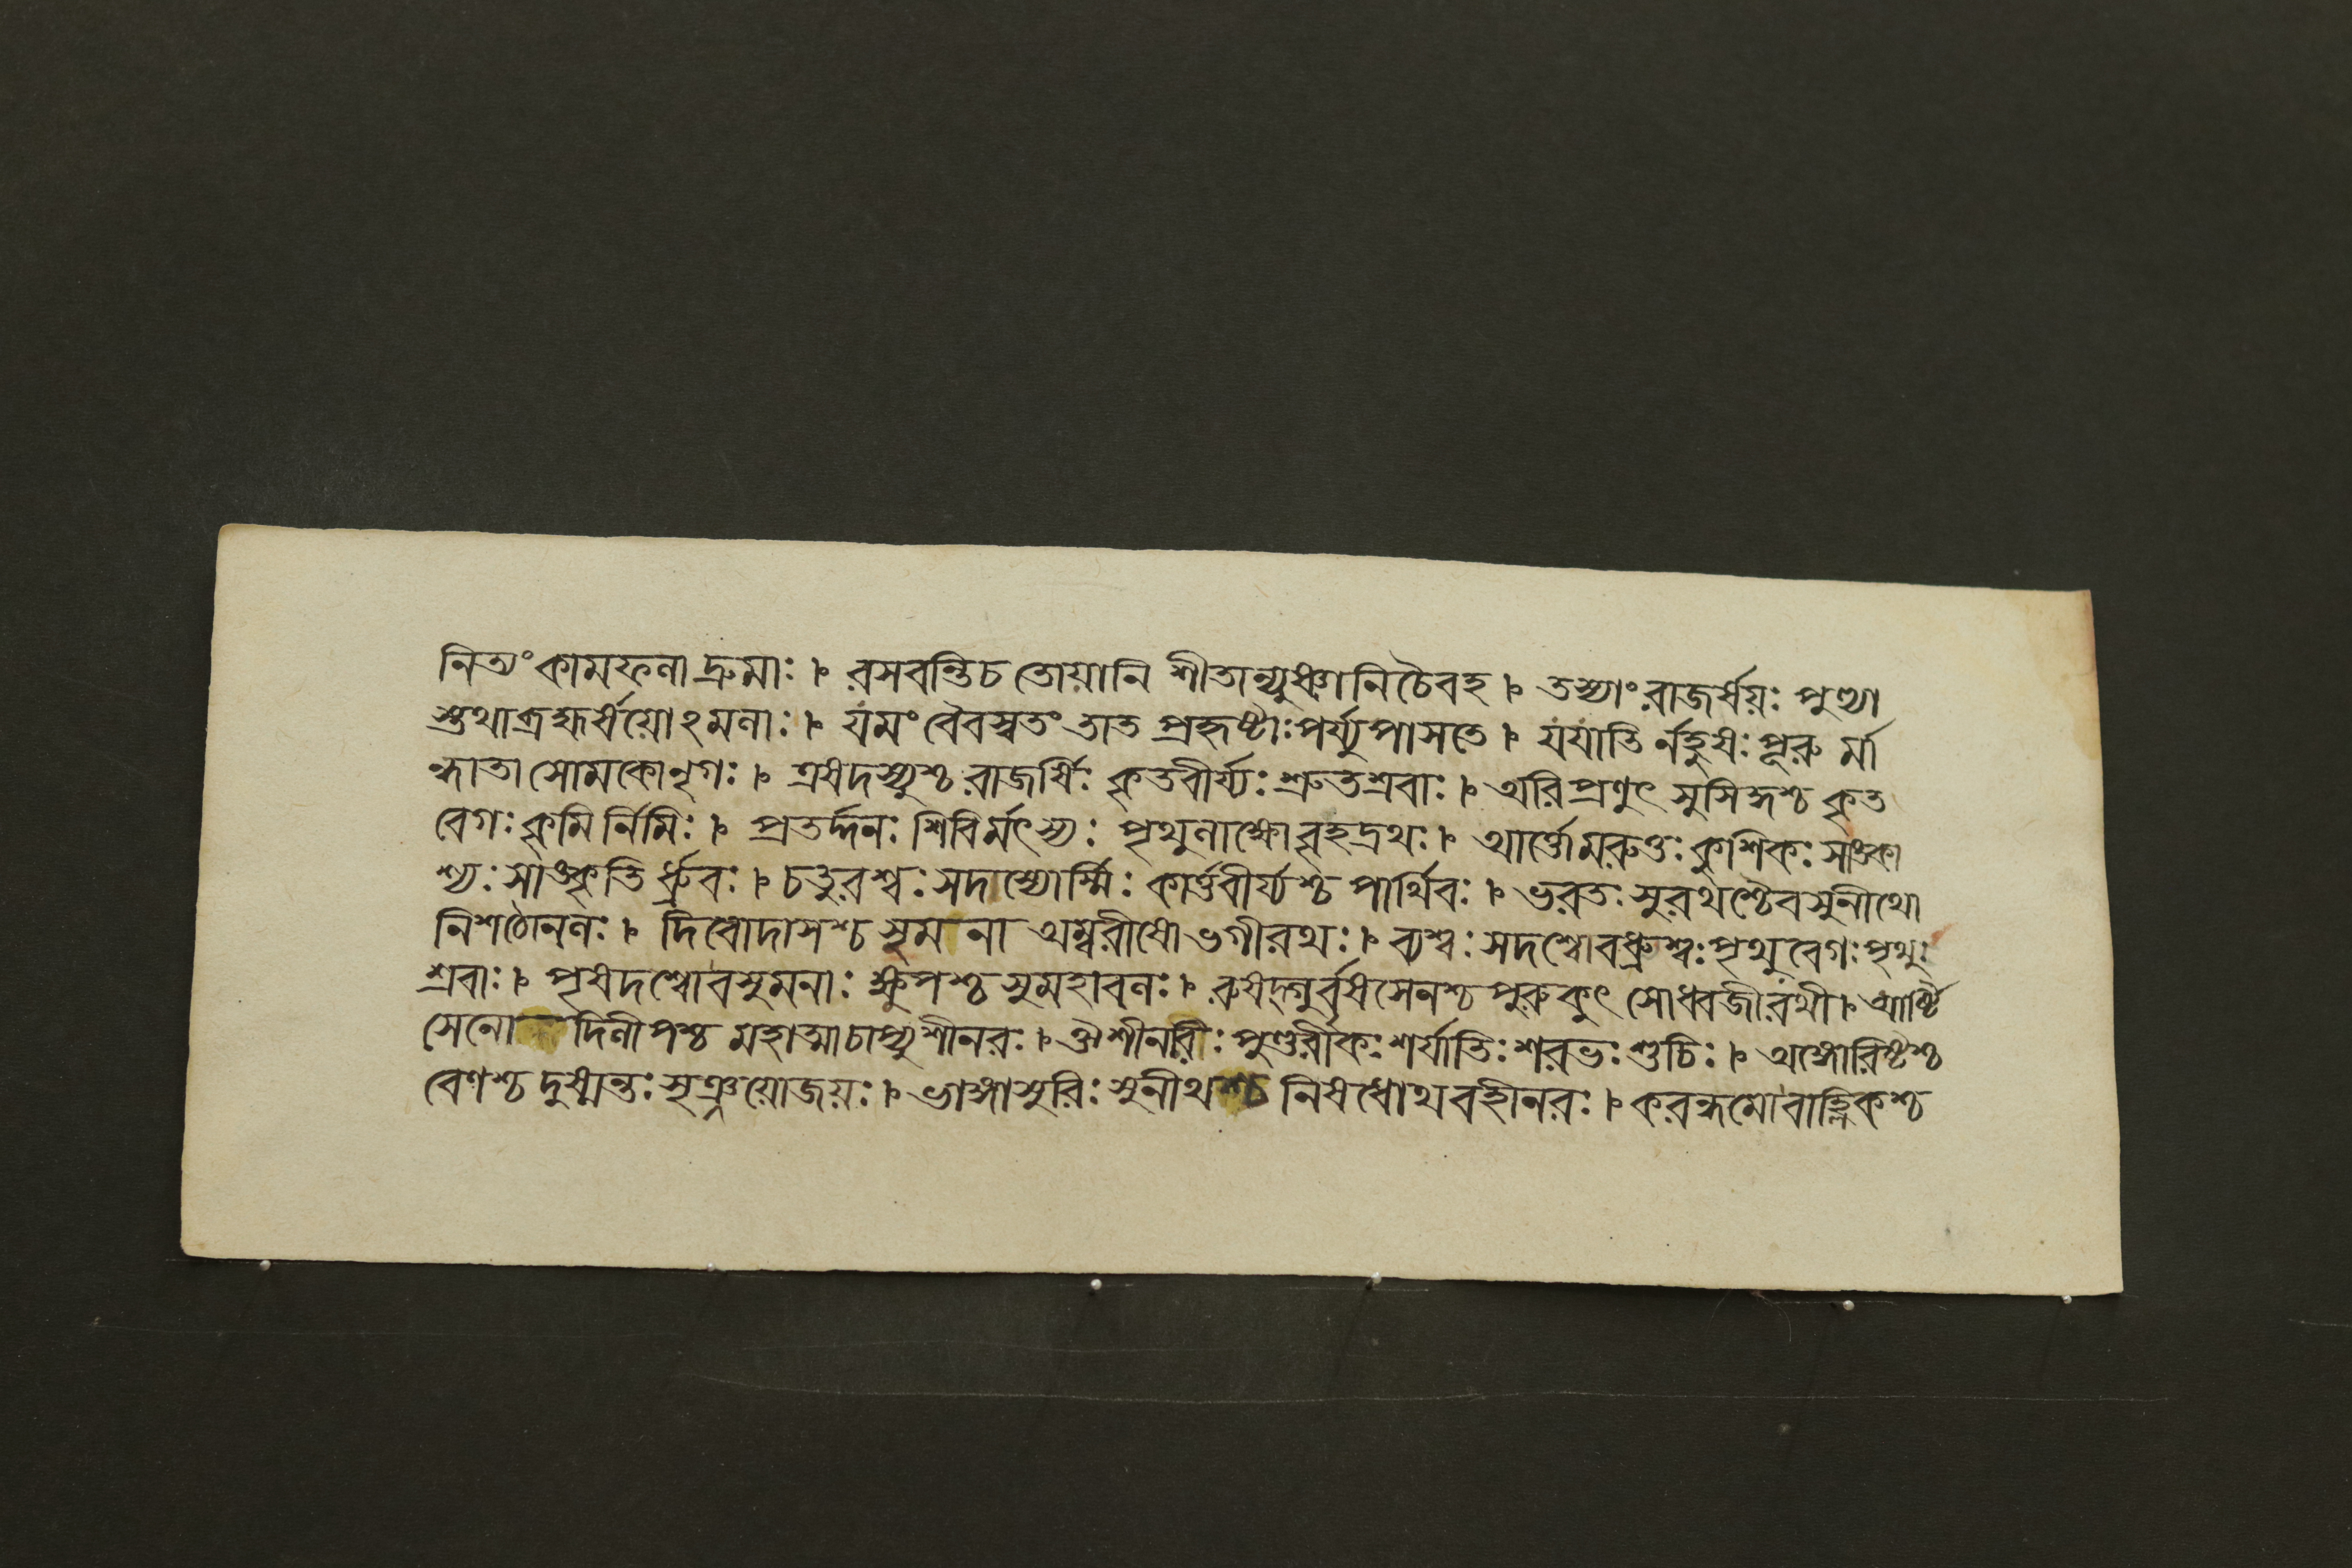 নিত্যং কামফলা দ্রুমাঃ । রসবন্তি চ তোয়ানি শীতান্যুষ্ণানি চৈবহ । তস্যাং রাজর্ষয়ঃ পুণ্যা
স্তথা ব্রহ্মর্ষয়োঽমলাঃ । যমং বৈবস্বতং তাত প্রহৃষ্টাঃ পর্য্যুপাসতে । যযাতি র্নহুষঃ পূরু র্মা
ন্ধাতা সোমকোনৃগঃ । ত্রষদস্যুশ্চ রাজর্ষিঃ কৃতবীর্য্যঃ শ্রুতশ্রবাঃ । অরিপ্রণুৎ সুসিংহশ্চ কৃত
বেগঃ কৃমি র্নিমিঃ । প্রতর্দ্দনঃ শিবির্মৎস্যঃ পৃথুলাক্ষো বৃহদ্রথঃ । আর্ত্তো মরুত্তঃ কুশিকঃ সাঙ্কা
শ্যঃ সাঙ্কৃতি র্ধ্রুবঃ । চতুরশ্বঃ সদাশ্বোর্ম্মিঃ কার্ত্তবীর্য্যশ্চ পার্থিবঃ । ভরতঃ সুরথশ্চৈব সুনীথো
নিশঠোনলঃ । দিবোদাসশ্চ সুমনা অম্বরীষো ভগীরথঃ । ব্যশ্বঃ সদশ্বো বধ্রুশ্বঃ পৃথুবেগঃ পৃথুঃ
শ্রবাঃ । পৃষদশ্বো বসুমনাঃ ক্ষুপশ্চ সুমহাবলঃ । রুষদ্গুর্বৃষসেনশ্চ পুরুকুৎ সোধ্বজী রথী । আর্ষ্টি
সেনো দিলীপশ্চ মহাত্মা চাপ্যুশীনরঃ । ঔশীনরিঃ পুণ্ডরীকঃ শর্যাতিঃ শরভঃ শুচিঃ । অঙ্গোরিষ্টশ্চ
বেণশ্চ দুষ্মন্তঃ সৃঞ্জয়ো জয়ঃ । ভাঙ্গাসুরিঃ সুনীথশ্চ নিষধোথ বহীনরঃ । করন্ধমো বাহ্লিকশ্চ